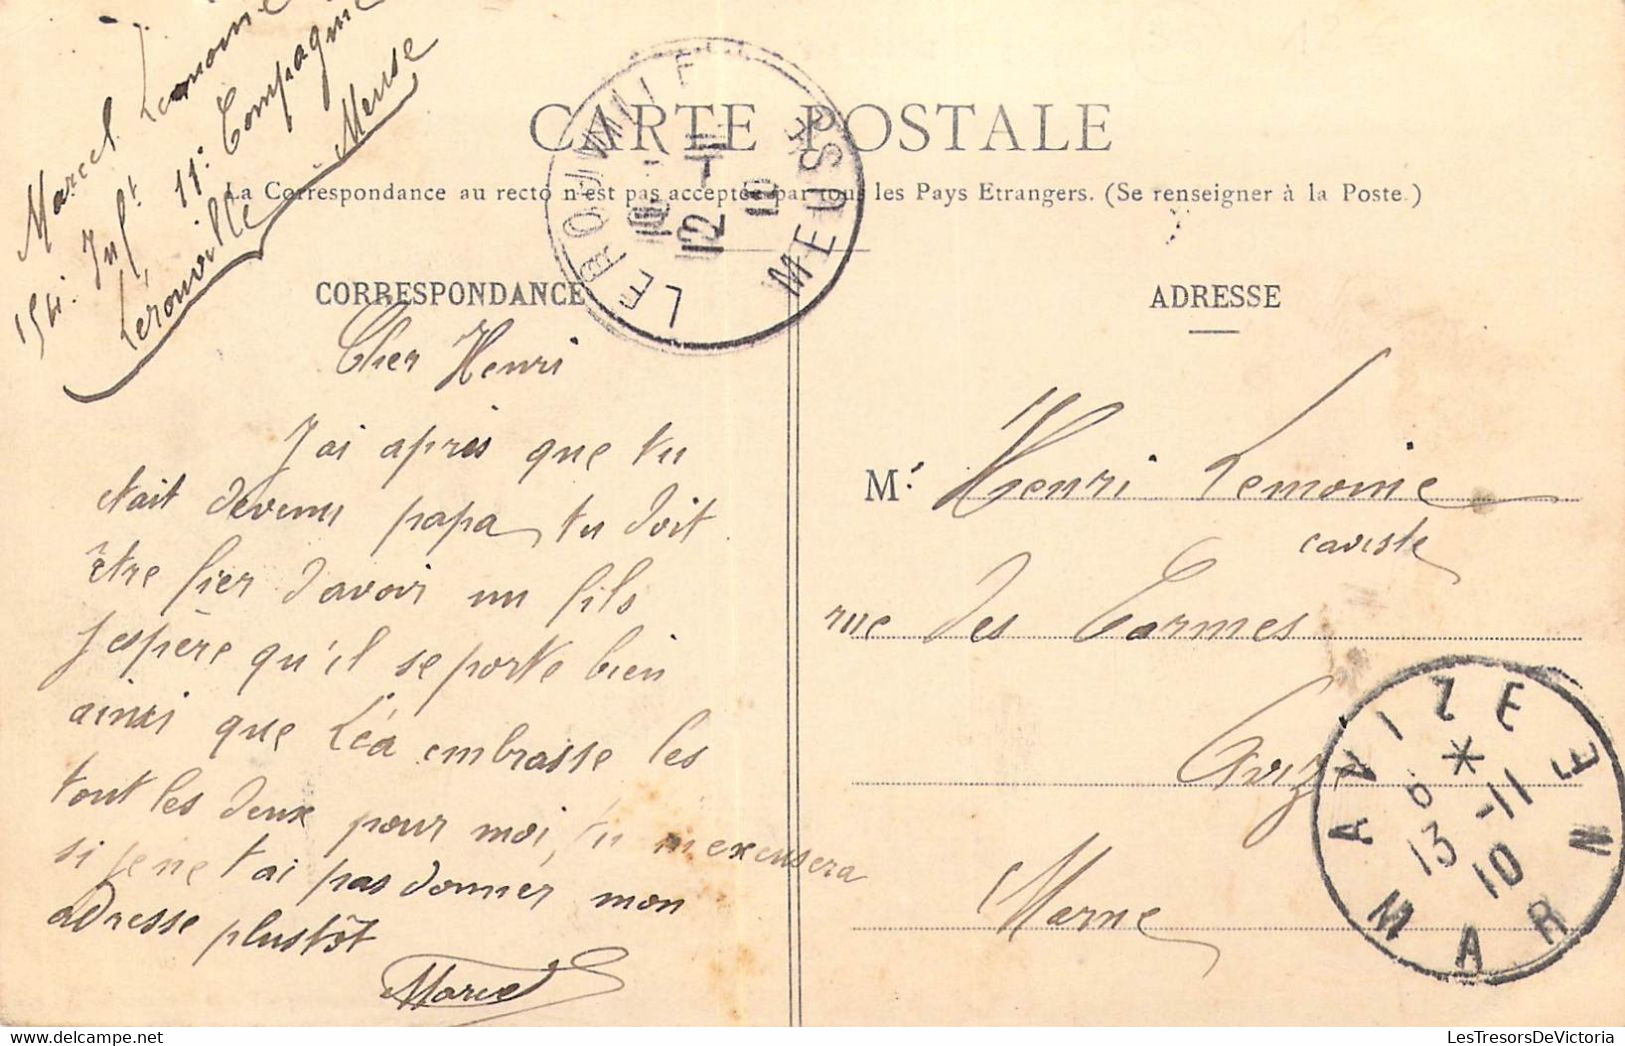 Marcel Lemoine
154e Inft 11e Compagnie
Lérouville Meuse
CARTE POSTALE
La Correspondance au recto n'est pas acceptée par tous les Pays Etrangers. (Se renseigner à la Poste.)
LEROUVILLE
12 -11
10
MEUSE
CORRESPONDANCE
Cher Henri
J'ai apris que tu
était devenu papa, tu doit
être fier d'avoir un fils
j'espère qu'il se porte bien
ainsi que Léa embrasse les
tout les deux pour moi, tu m'excusera
si je ne t'ai pas donner mon
adresse plustôt
Marcel
ADRESSE
Mr. Henri Lemoine
caviste
rue des Carmes
Avize
Marne
AVIZE
*
13 -11
10
MARNE
LesTresorsDeVictoria.com